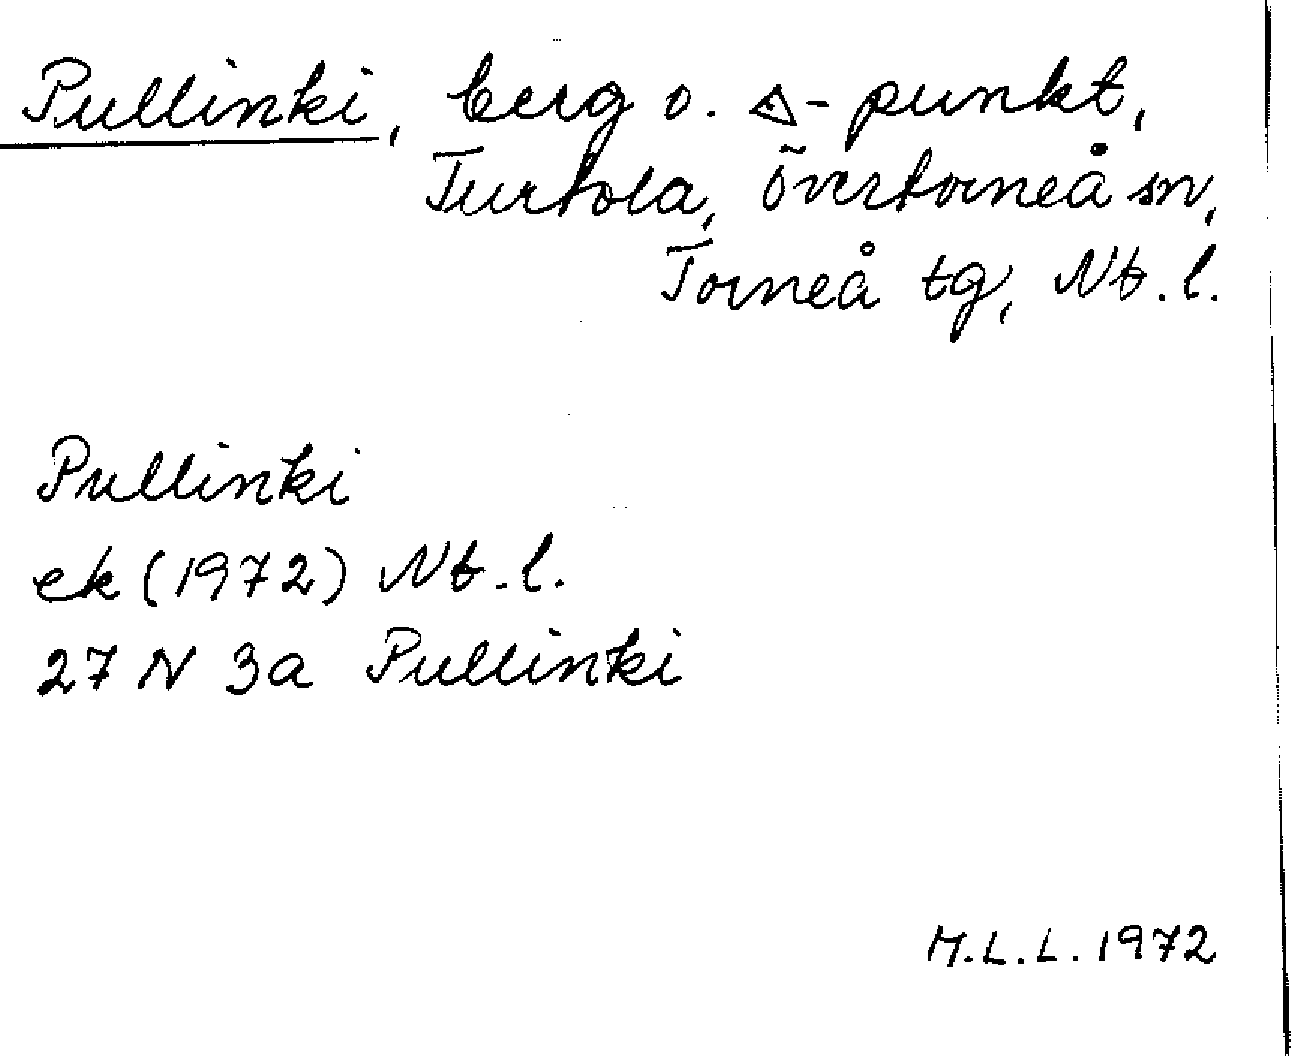 Pullinki, berg o. △-punkt,
Turtola, Övertorneå sn,
Torneå tg, Nb.l.
Pullinki
ek (1972) Nb.l.
27 N 3a Pullinki
M.L.L. 1972